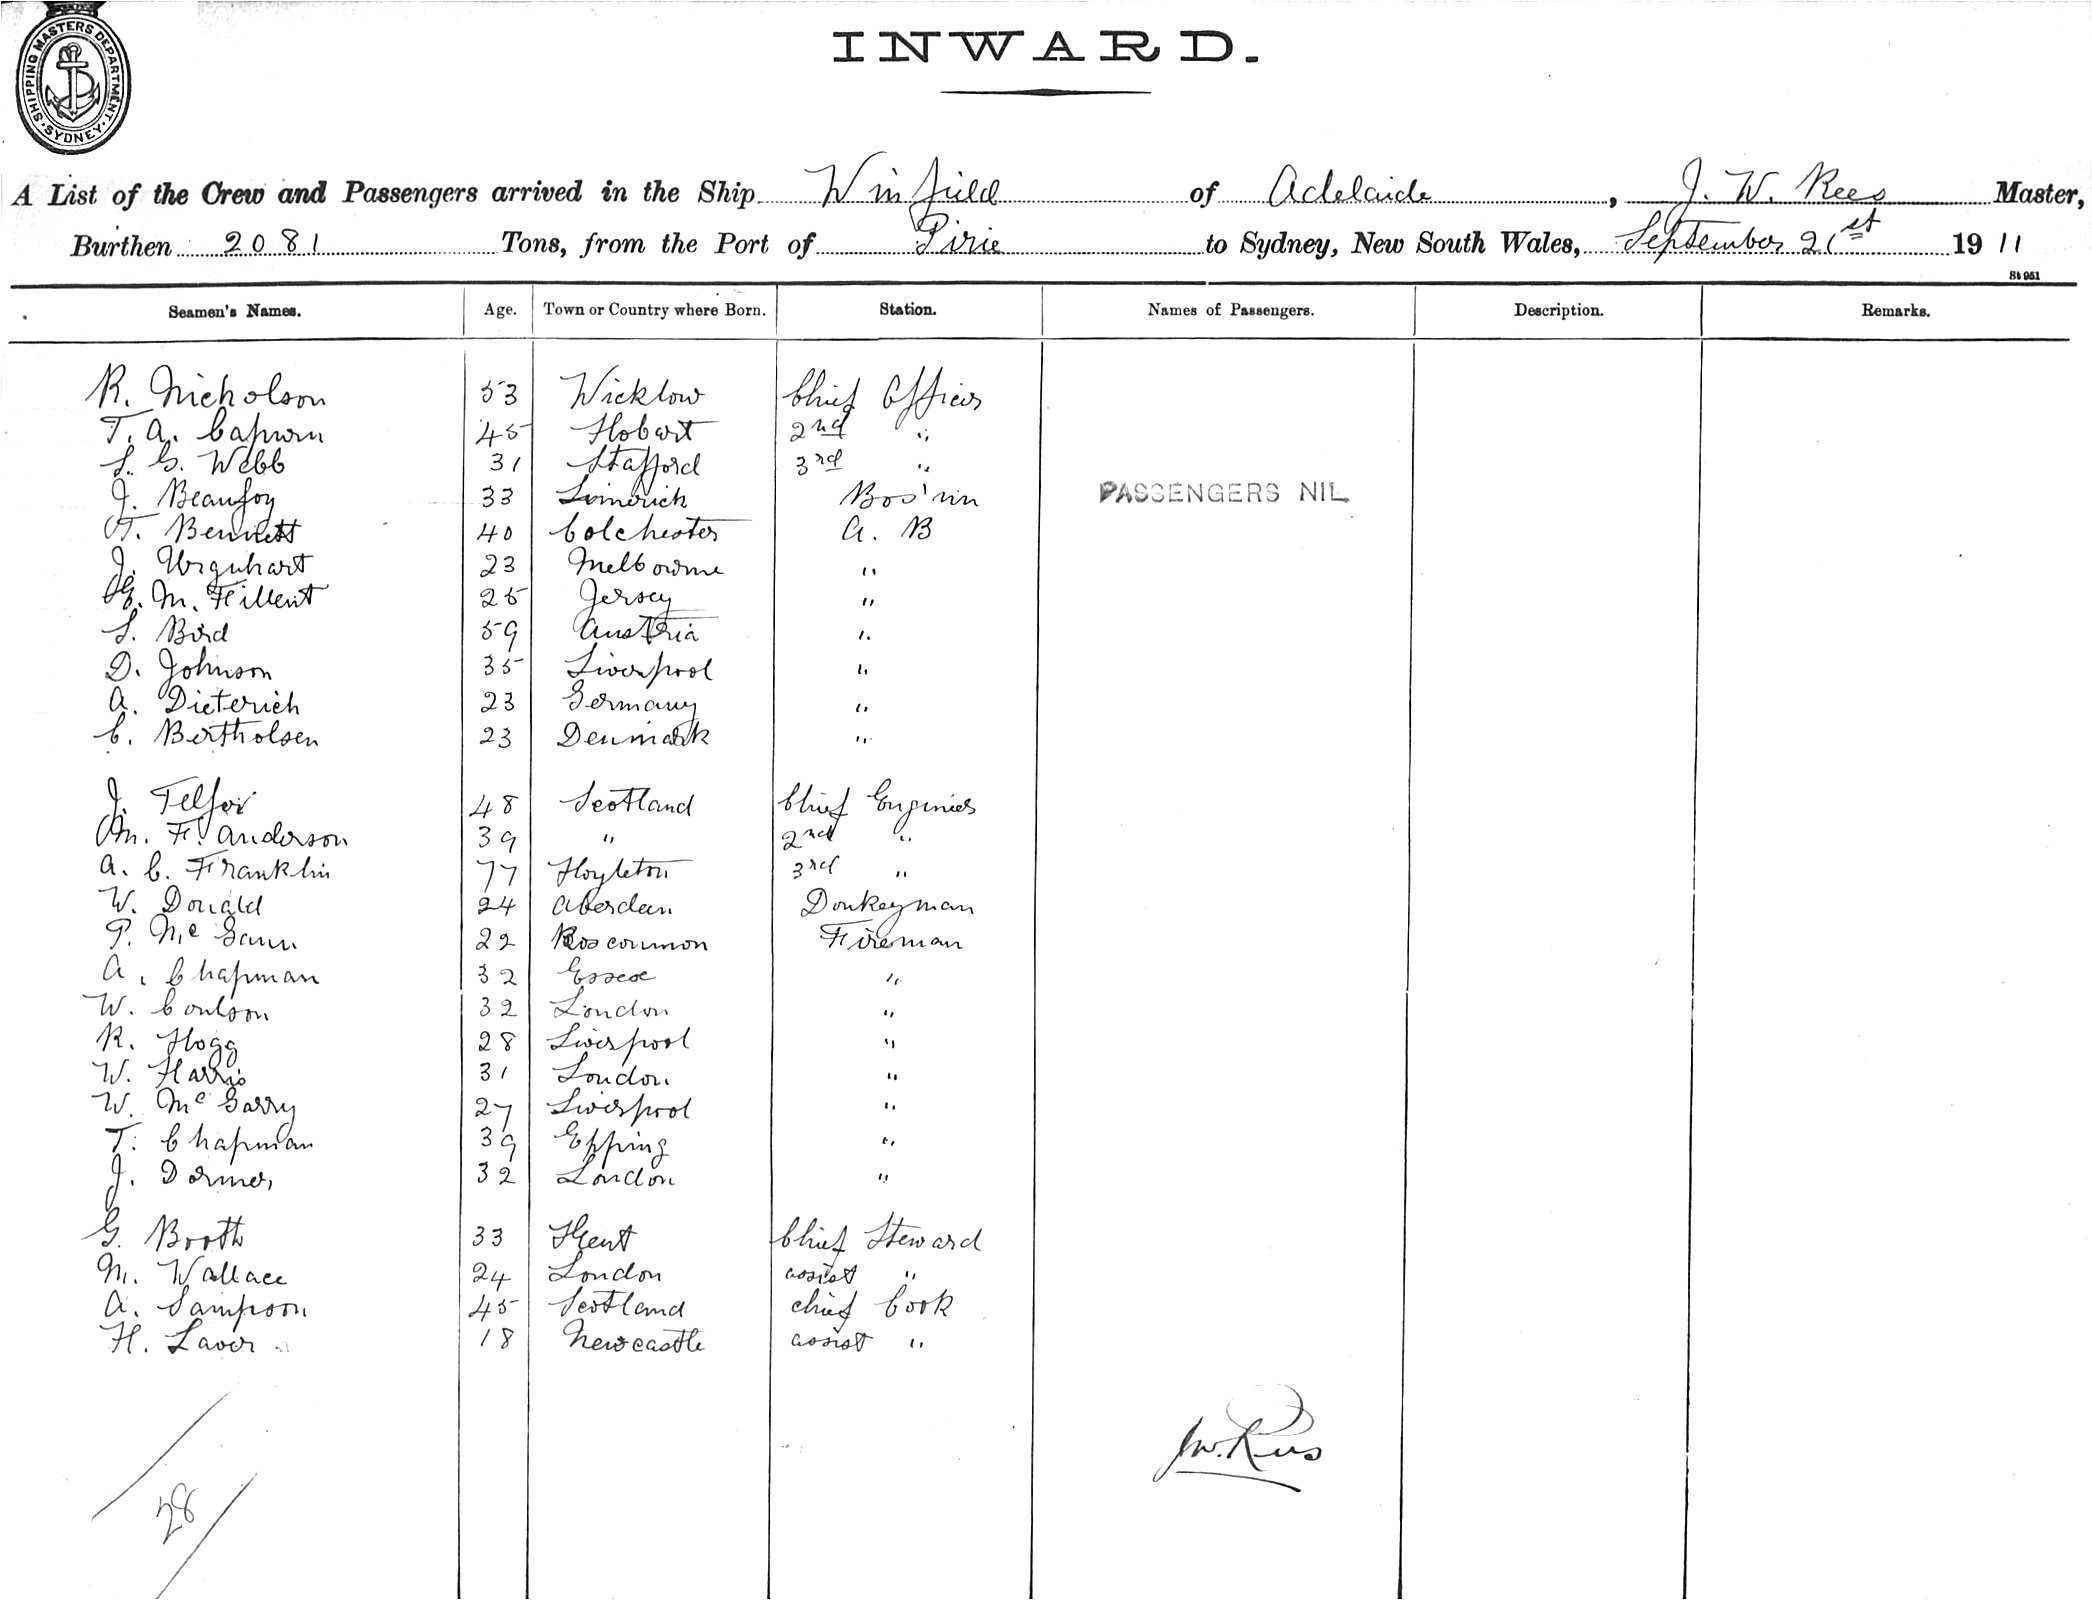 SHIPPING MASTERS DEPARTMENT. SYDNEY.
INWARD.
A List of the Crew and Passengers arrived in the Ship Winfield of Adelaide, J. W. Rees Master,
Burthen 2081 Tons, from the Port of Pirie to Sydney, New South Wales, September 21st 1911
St 951
Seamen's Names. Age. Town or Country where Born. Station. Names of Passengers. Description. Remarks.
R. Nicholson 53 Wicklow Chief Officer
T. A. Capurn 45 Hobart 2nd "
S. G. Webb 31 Stafford 3rd "
J. Beaufoy 33 Limerick Bos'un PASSENGERS NIL
T. Bennett 40 Colchester A. B
J. Urquhart 23 Melbourne "
G. M. Fillent 25 Jersey "
S. Bird 59 Austria "
D. Johnson 35 Liverpool "
A. Dieterich 23 Germany "
C. Bertholsen 23 Denmark "
J. Telfor 48 Scotland Chief Engineer
M. F. Anderson 39 " 2nd "
A. C. Franklin 77 Hoyleton 3rd "
W. Donald 24 Aberdeen Donkeyman
P. McGann 22 Roscommon Fireman
A. Chapman 32 Essex "
W. Coulson 32 London "
R. Hogg 28 Liverpool "
W. Harris 31 London "
W. McGarry 27 Liverpool "
T. Chapman 39 Epping "
J. Dormer 32 London "
G. Booth 33 Kent Chief Steward
M. Wallace 24 London assist "
A. Sampson 45 Scotland chief Cook
H. Laver 18 Newcastle assist "
J W. Rees
28